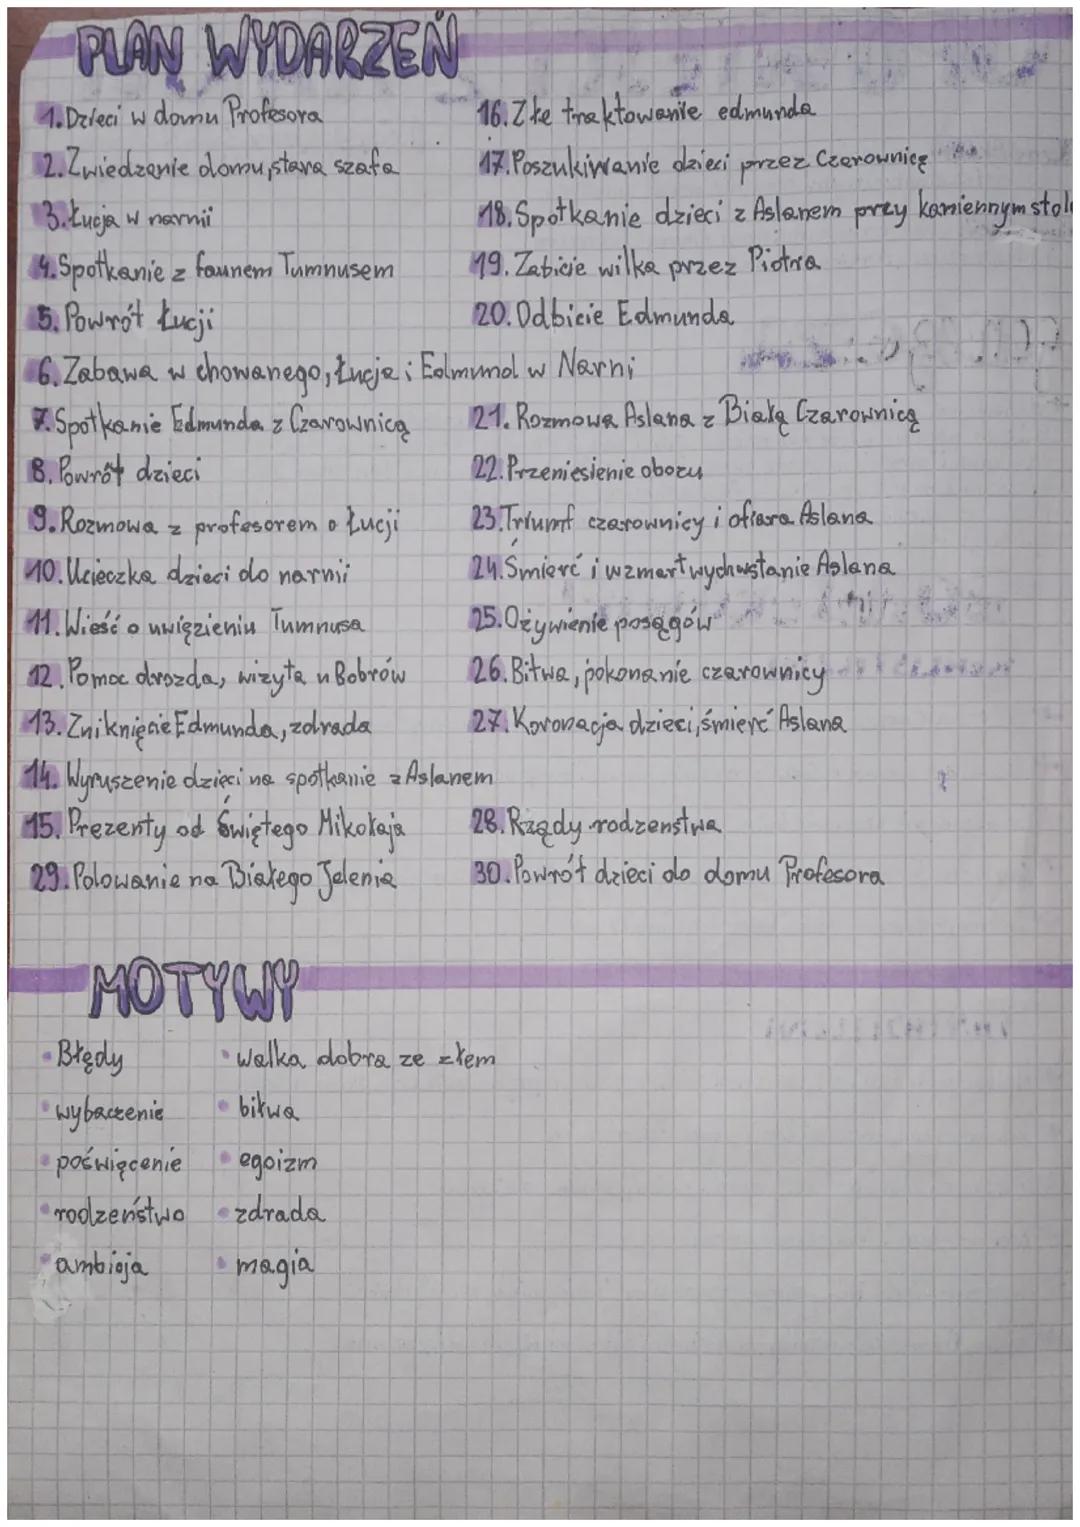 PLAN WYDARZEŃ
1. Dzieci w domu Profesora
2. Zwiedzanie domu, stara szafa
3. Łucja w narnii
4. Spotkanie z faunem Tumnusem
5. Powrót Łucji
6. Zabawa w chowanego, Łucja i Edmund w Narni
7. Spotkanie Edmunda z Czarownicą
8. Powrót dzieci
9. Rozmowa z profesorem o Łucji
10. Ucieczka dzieci do narnii
11. Wieść o uwięzieniu Tumnusa
12. Pomoc drozda, wizyta u Bobrów
13. Zniknięcie Edmunda, zdrada
14. Wyruszenie dzieci na spotkanie z Aslanem
15. Prezenty od Świętego Mikołaja
16. Złe traktowanie edmunda
17. Poszukiwanie dzieci przez Czarownicę
18. Spotkanie dzieci z Aslanem przy kamiennym stole
19. Zabicie wilka przez Piotra
20. Odbicie Edmunda
21. Rozmowa Aslana z Białą Czarownicą
22. Przeniesienie obozu
23. Triumf czarownicy i ofiara Aslana
24. Śmierć i wzmartwychwstanie Aslana
25. Ożywienie posągów
26. Bitwa, pokonanie czarownicy
27. Koronacja dzieci, śmierć Aslana
28. Rządy rodzenstwa
29. Polowanie na Białego Jelenia
30. Powrót dzieci do domu Profesora
MOTYWY
• Błędy
• wybaczenie
• poświęcenie
• rodzeństwo
• ambicja
• walka dobra ze złem
• bitwa
• egoizm
• zdrada
• magia